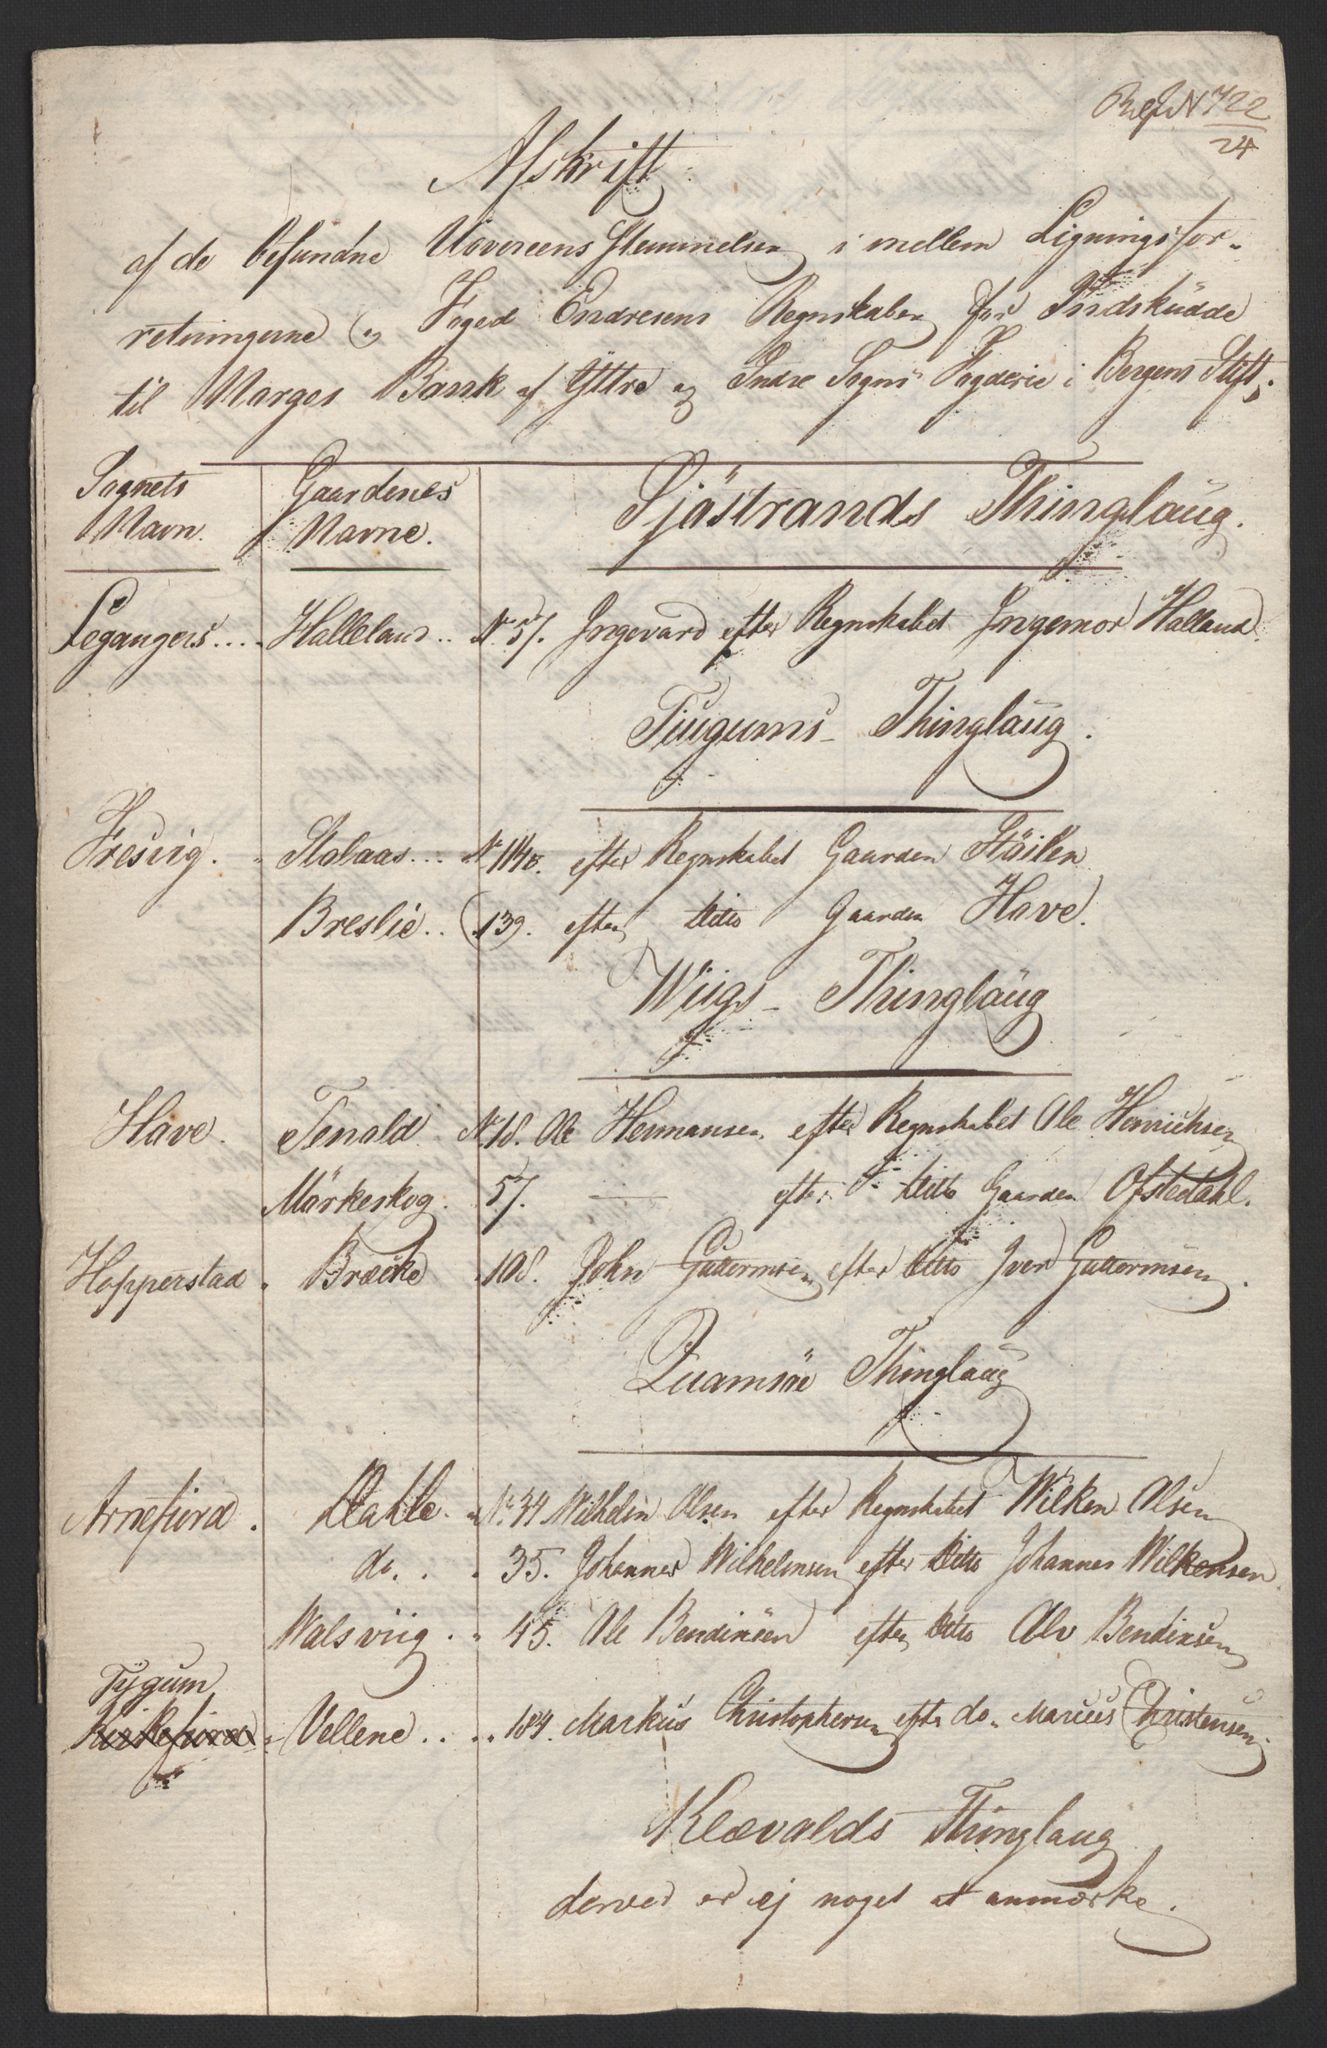 N 722
24
Afskrift
af de befundne Uovereens Stemmelsen i mellem Ligningsfor-
retningerne og Foged Endresens Regnskaben for Indskudde
til Norges Bank af Yttre og Indre Sogns Fogderie i Bergens Stift.
Sognets Navn. Gaardenes Navne. Sjöstrands Thinglaug.
Legangers.... Halleland.. No 57. Ingevard efter Regnskabet Ingemor Halland.
Tiugums- Thinglaug.
Fresvig. Stolaas... No 140. efter Regnskabet Gaarden
Breslie.. 139. efter Ditto Gaarden Hove.
Wiigs- Thinglaug
Hove. Tenold No 18. Ole Hermansen efter Regnskabet Ole Henrichsen
Mörkeskog. 57. — efter Ditto Gaarden Ofstedahl.
Hopperstad. Bræcke 108. John Guttormsen efter Ditto Iver Guttormsen.
Quamsöe Thinglaug
Arnefiord. Dahle. No 34 Wilhelm Olsen efter Regnskabet Wilken Olsen
do.. 35. Johannes Wilhelmsen efter Ditto Johannes Wilkensen.
Nalsviig. 45. Ole Bendixsen efter Ditto Olv Bendixsen
Tygum
Kirkefiord. Vellene.... 184. Markus Christophersen efter do. Marcus Christensen.
Klævolds Thinglaug
derved er ej noget at anmærke.